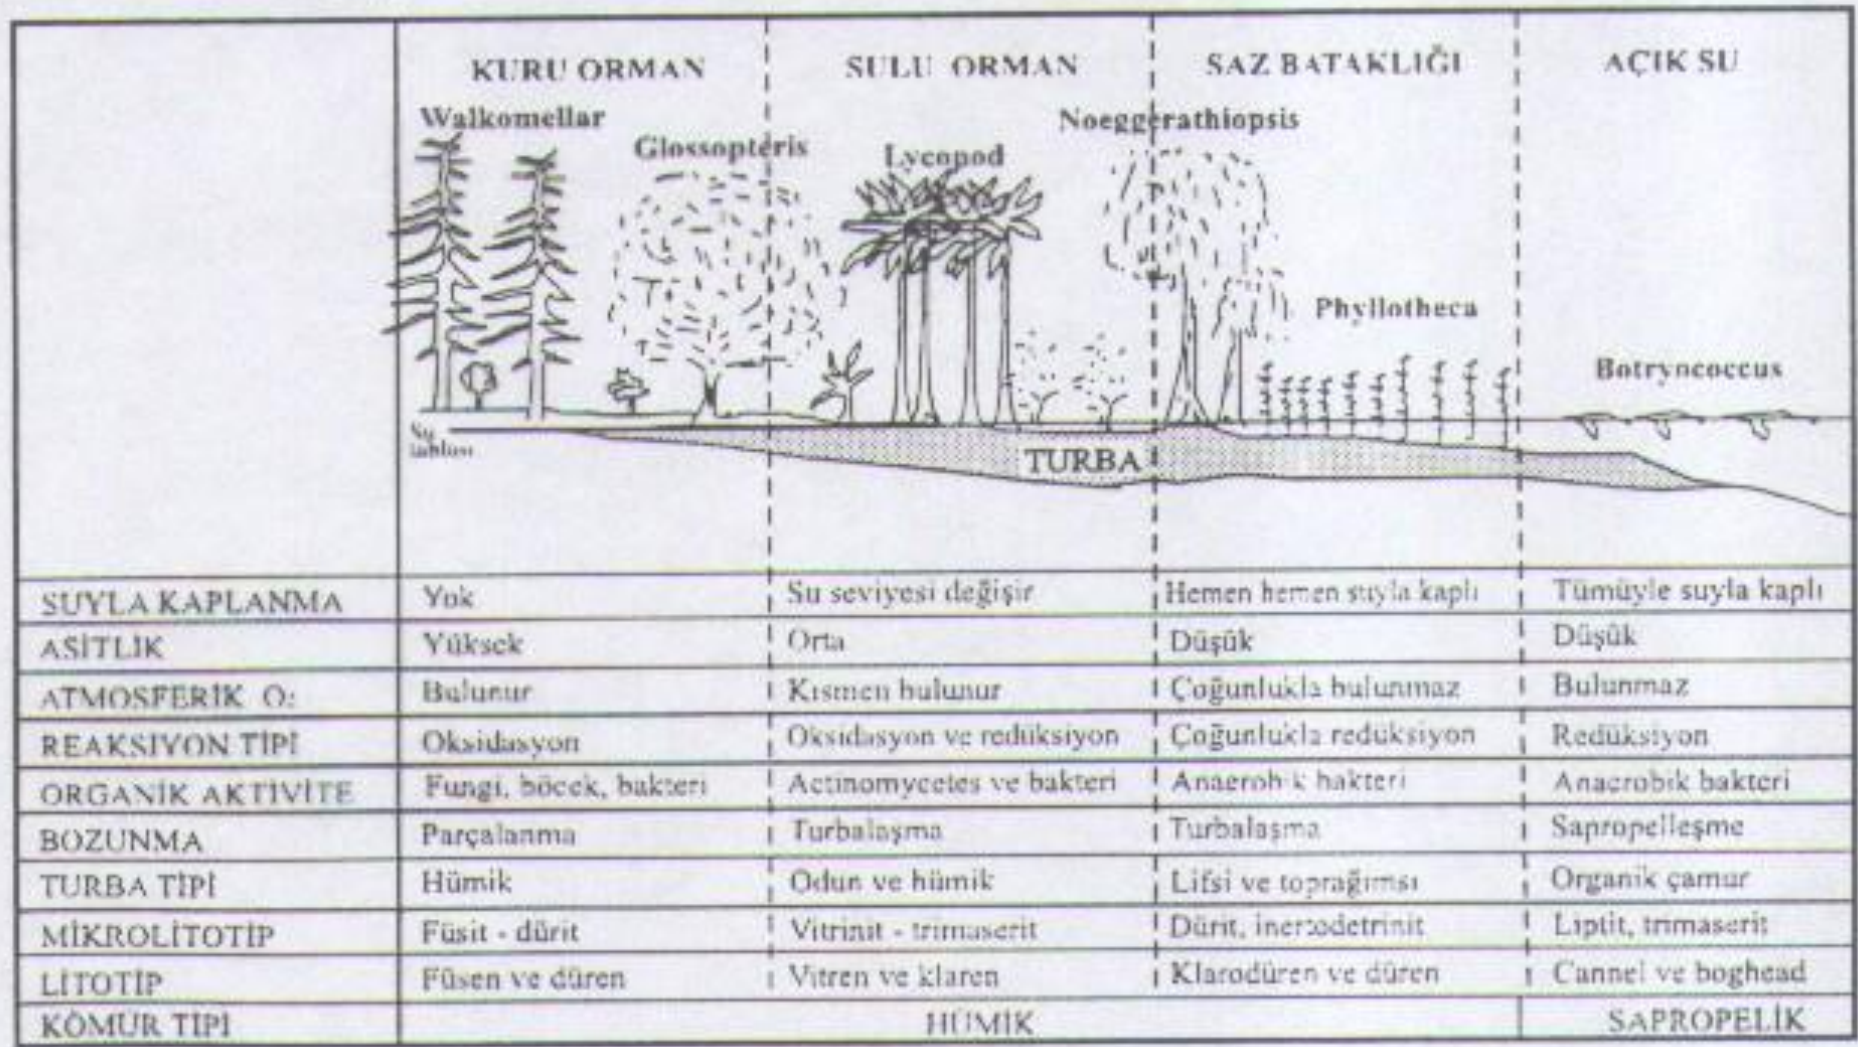 KURU ORMAN SULU ORMAN SAZ BATAKLIĞI AÇIK SU
Walkomellar
Noeggerathiopsis
Glossopteris
Lycopod
Phyllotheca
Botryncoccus
Su
tablası
TURBA
SUYLA KAPLANMA Yok Su seviyesi değişir Hemen hemen suyla kaplı Tümüyle suyla kaplı
ASİTLİK Yüksek Orta Düşük Düşük
ATMOSFERİK O2 Bulunur Kısmen bulunur Çoğunlukla bulunmaz Bulunmaz
REAKSIYON TİPİ Oksidasyon Oksidasyon ve redüksiyon Çoğunlukla redüksiyon Redüksiyon
ORGANİK AKTİVİTE Fungi, böcek, bakteri Actinomycetes ve bakteri Anaerobik bakteri Anaerobik bakteri
BOZUNMA Parçalanma Turbalaşma Turbalaşma Sapropelleşme
TURBA TİPİ Hümik Odun ve hümik Lifsi ve toprağımsı Organik çamur
MİKROLİTOTİP Füsit - dürit Vitrinit - trimaserit Dürit, inertodetrinit Liptit, trimaserit
LİTOTİP Füsen ve düren Vitren ve klaren Klarodüren ve düren Cannel ve boghead
KÖMUR TİPİ HÜMİK SAPROPELİK